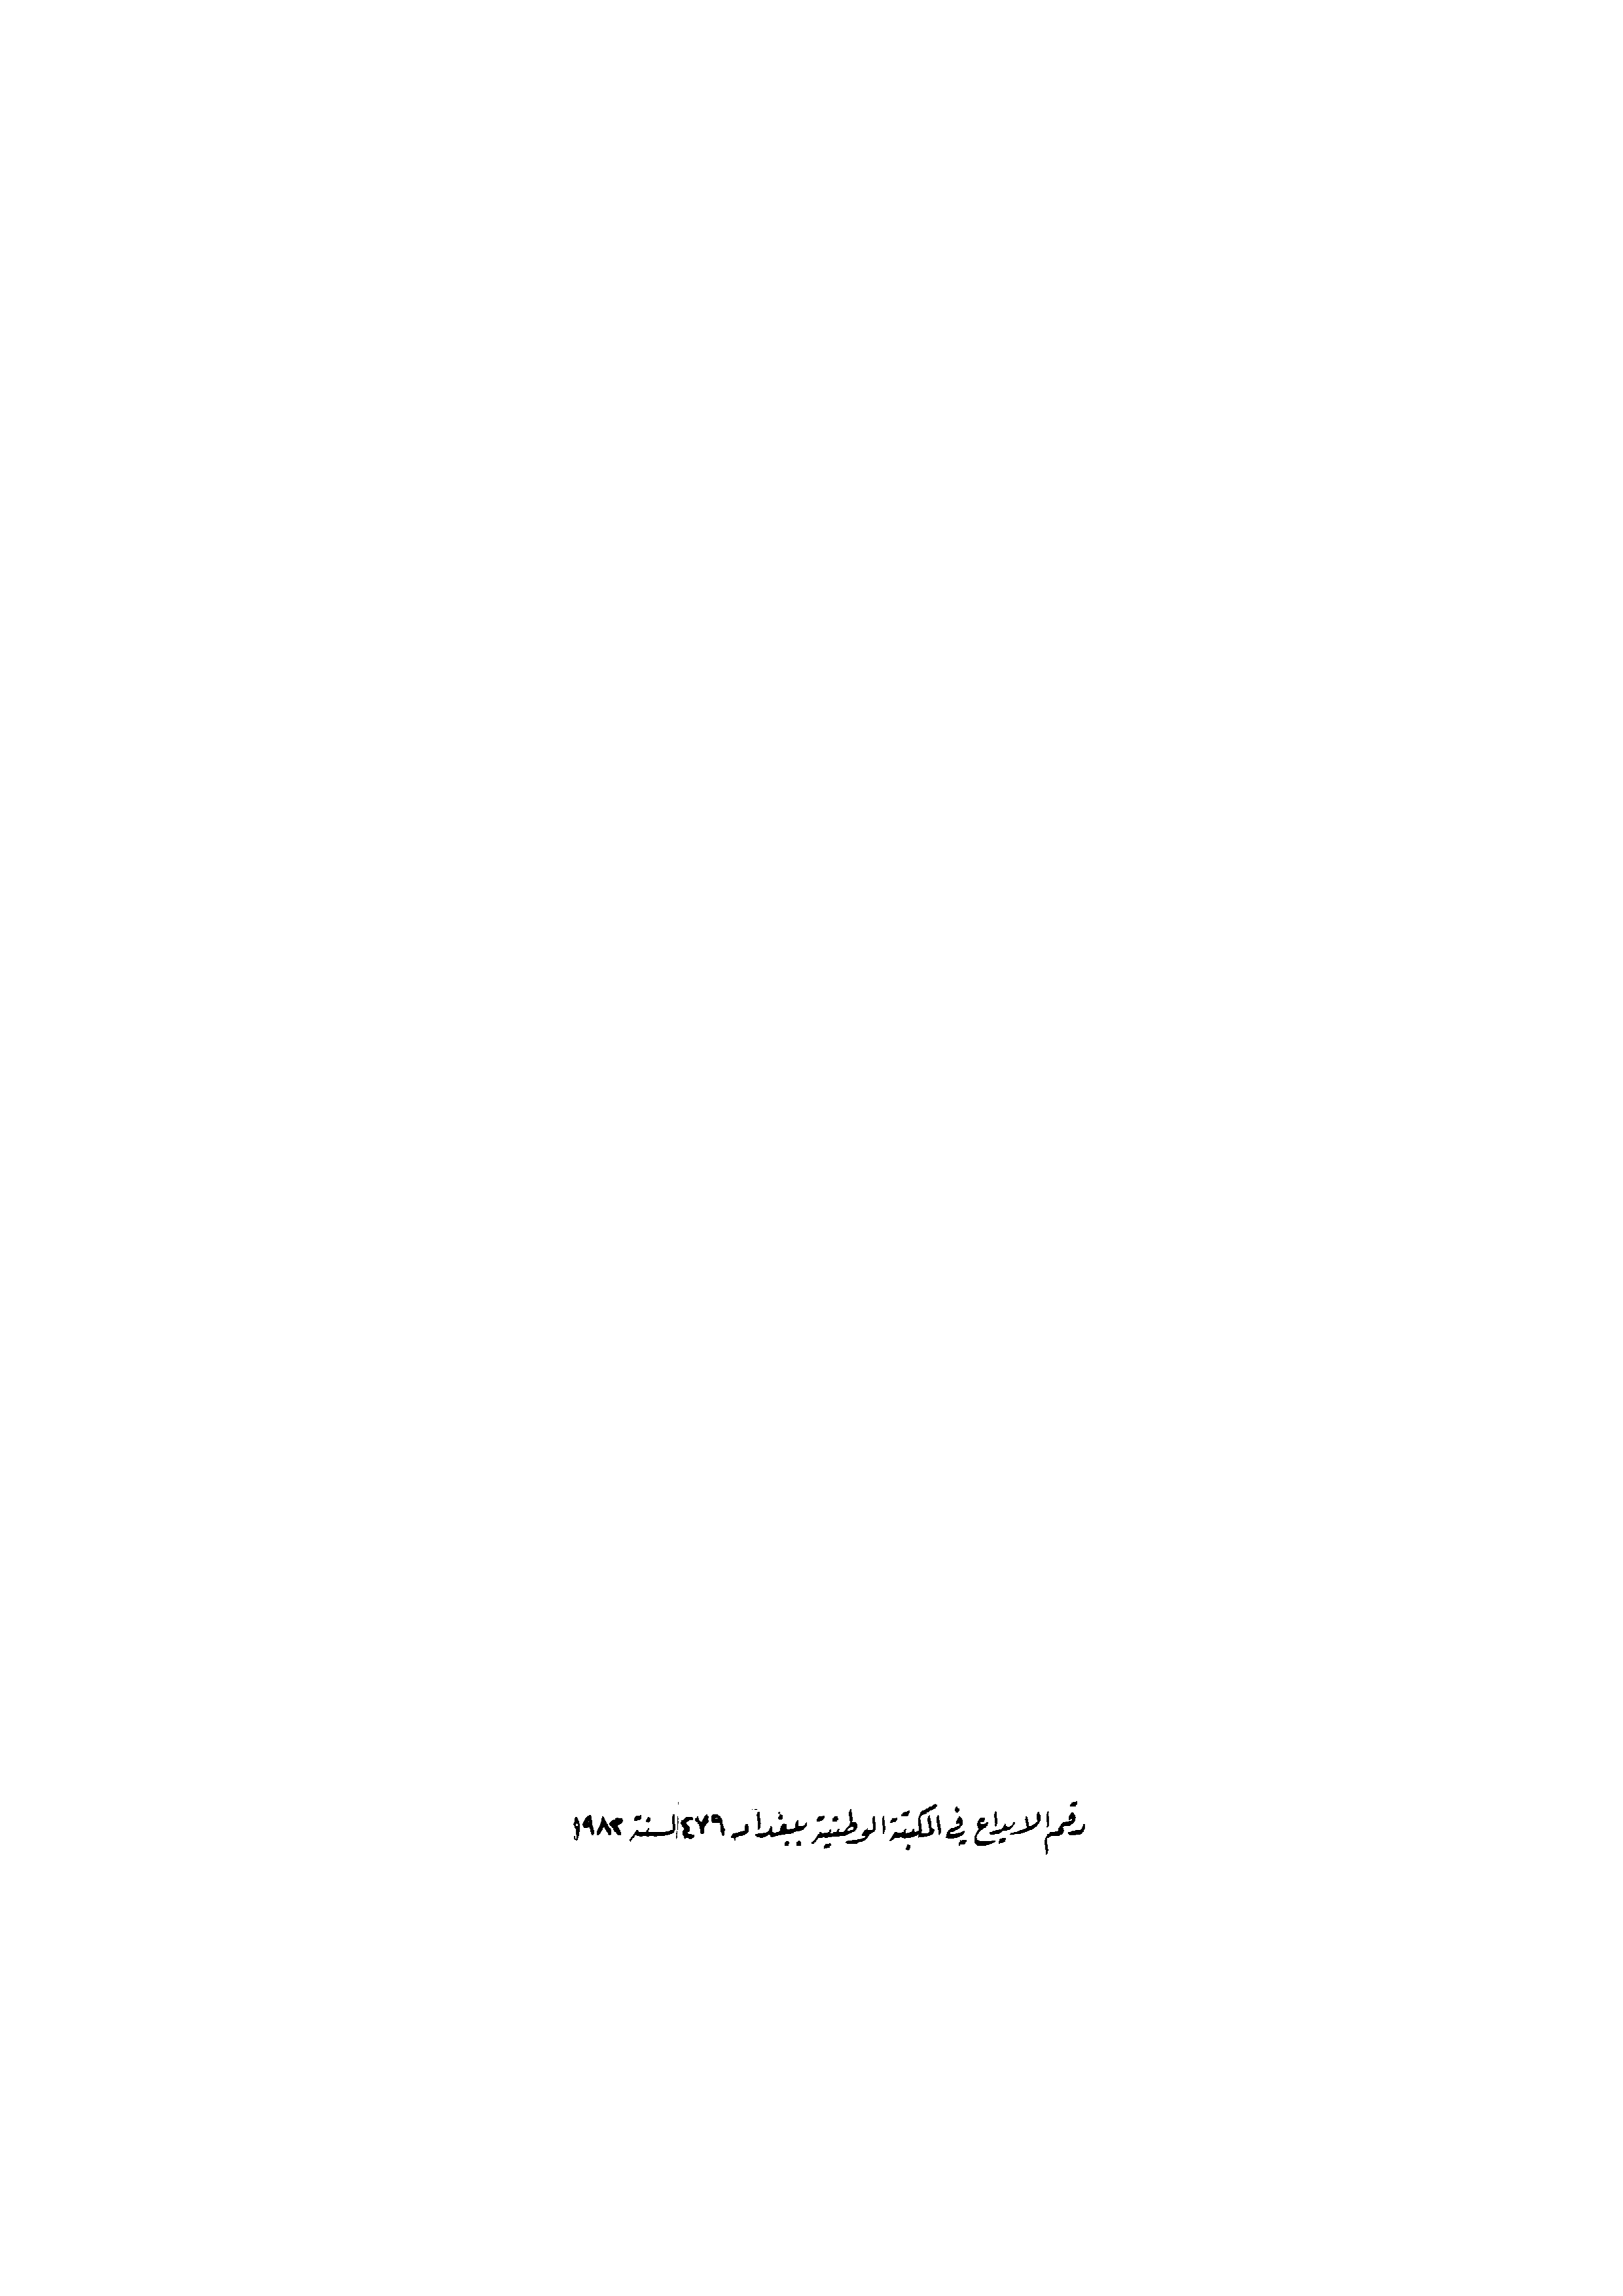 رقم الايداع في المكتبة الوطنية ببغداد ٤٧٩ لسنة ١٩٨٣